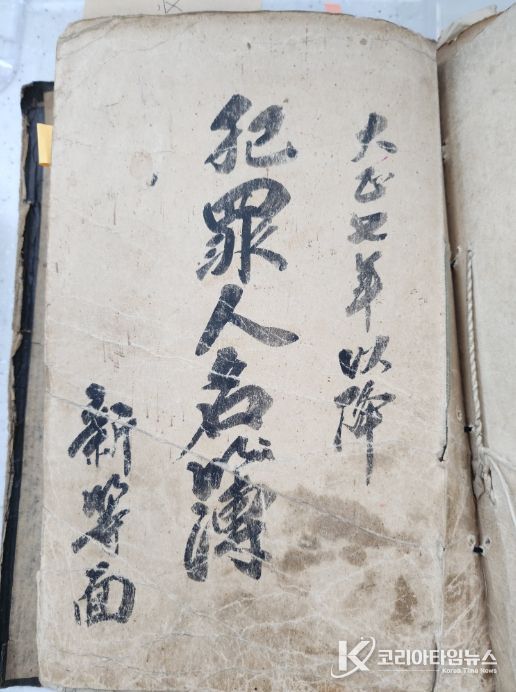 大正七年以降
犯罪人名簿
新等面
코리아타임뉴스
Korea Time News